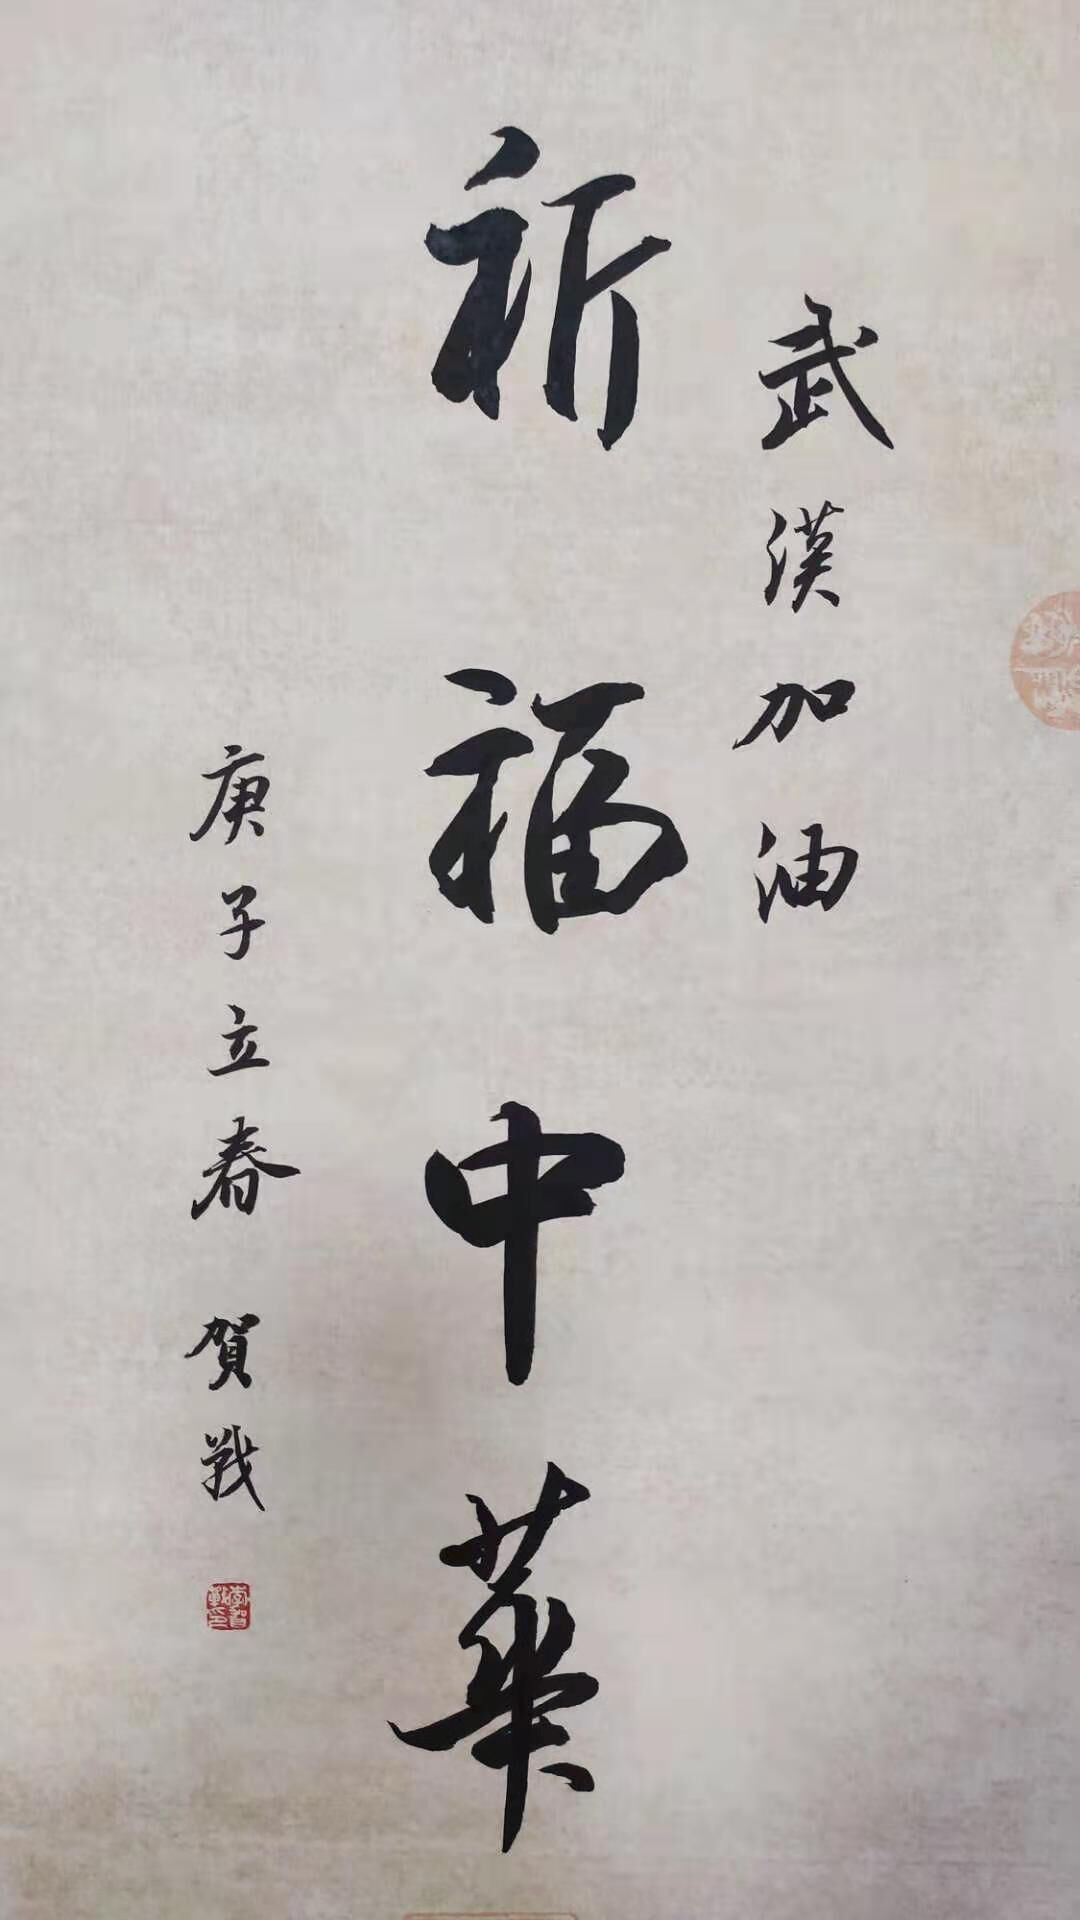 武漢加油
祈福中華
庚子立春 賀戰